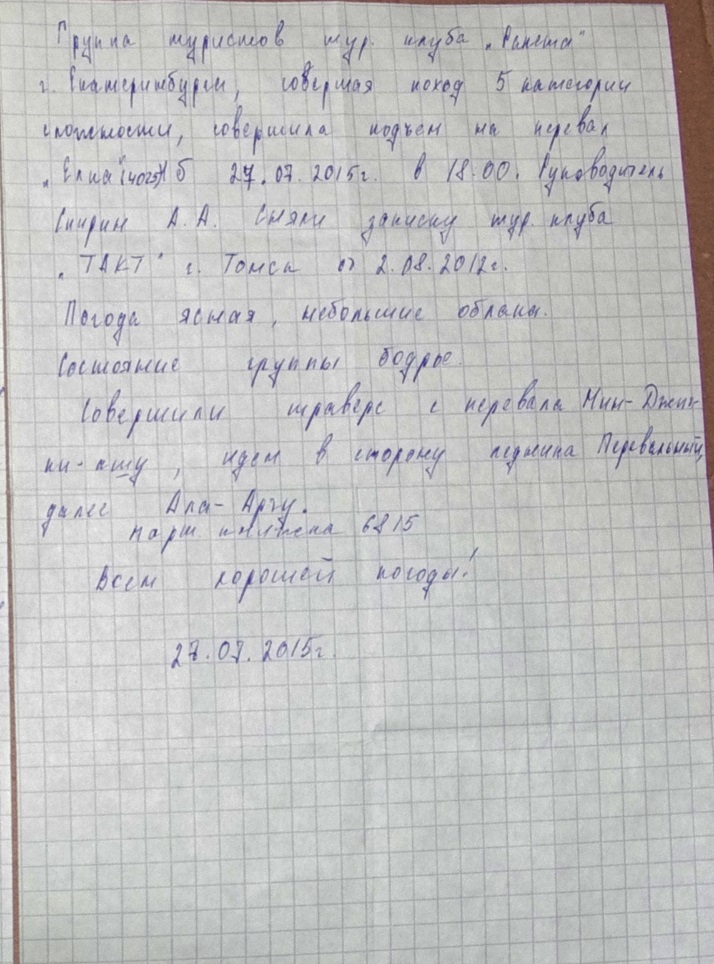 Группа туристов тур. клуба „Ракета"
г. Екатеринбурга, совершая поход 5 категории
сложности, совершила подъем на перевал
„Елка" (4025) 27.07.2015г. в 18.00. Руководитель
Спирин А.А. Сняли записку тур. клуба
„ТАКТ" г. Томск от 2.08.2012г.
Погода ясная, небольшие облака.
Состояние группы бодрое.
Совершили траверс с перевала Мин-Джил-
ки, идем в сторону ледника Перевальный,
далее Ала-Арчу.
Марш. книжка 6815
Всем хорошей погоды!
27.07.2015г.